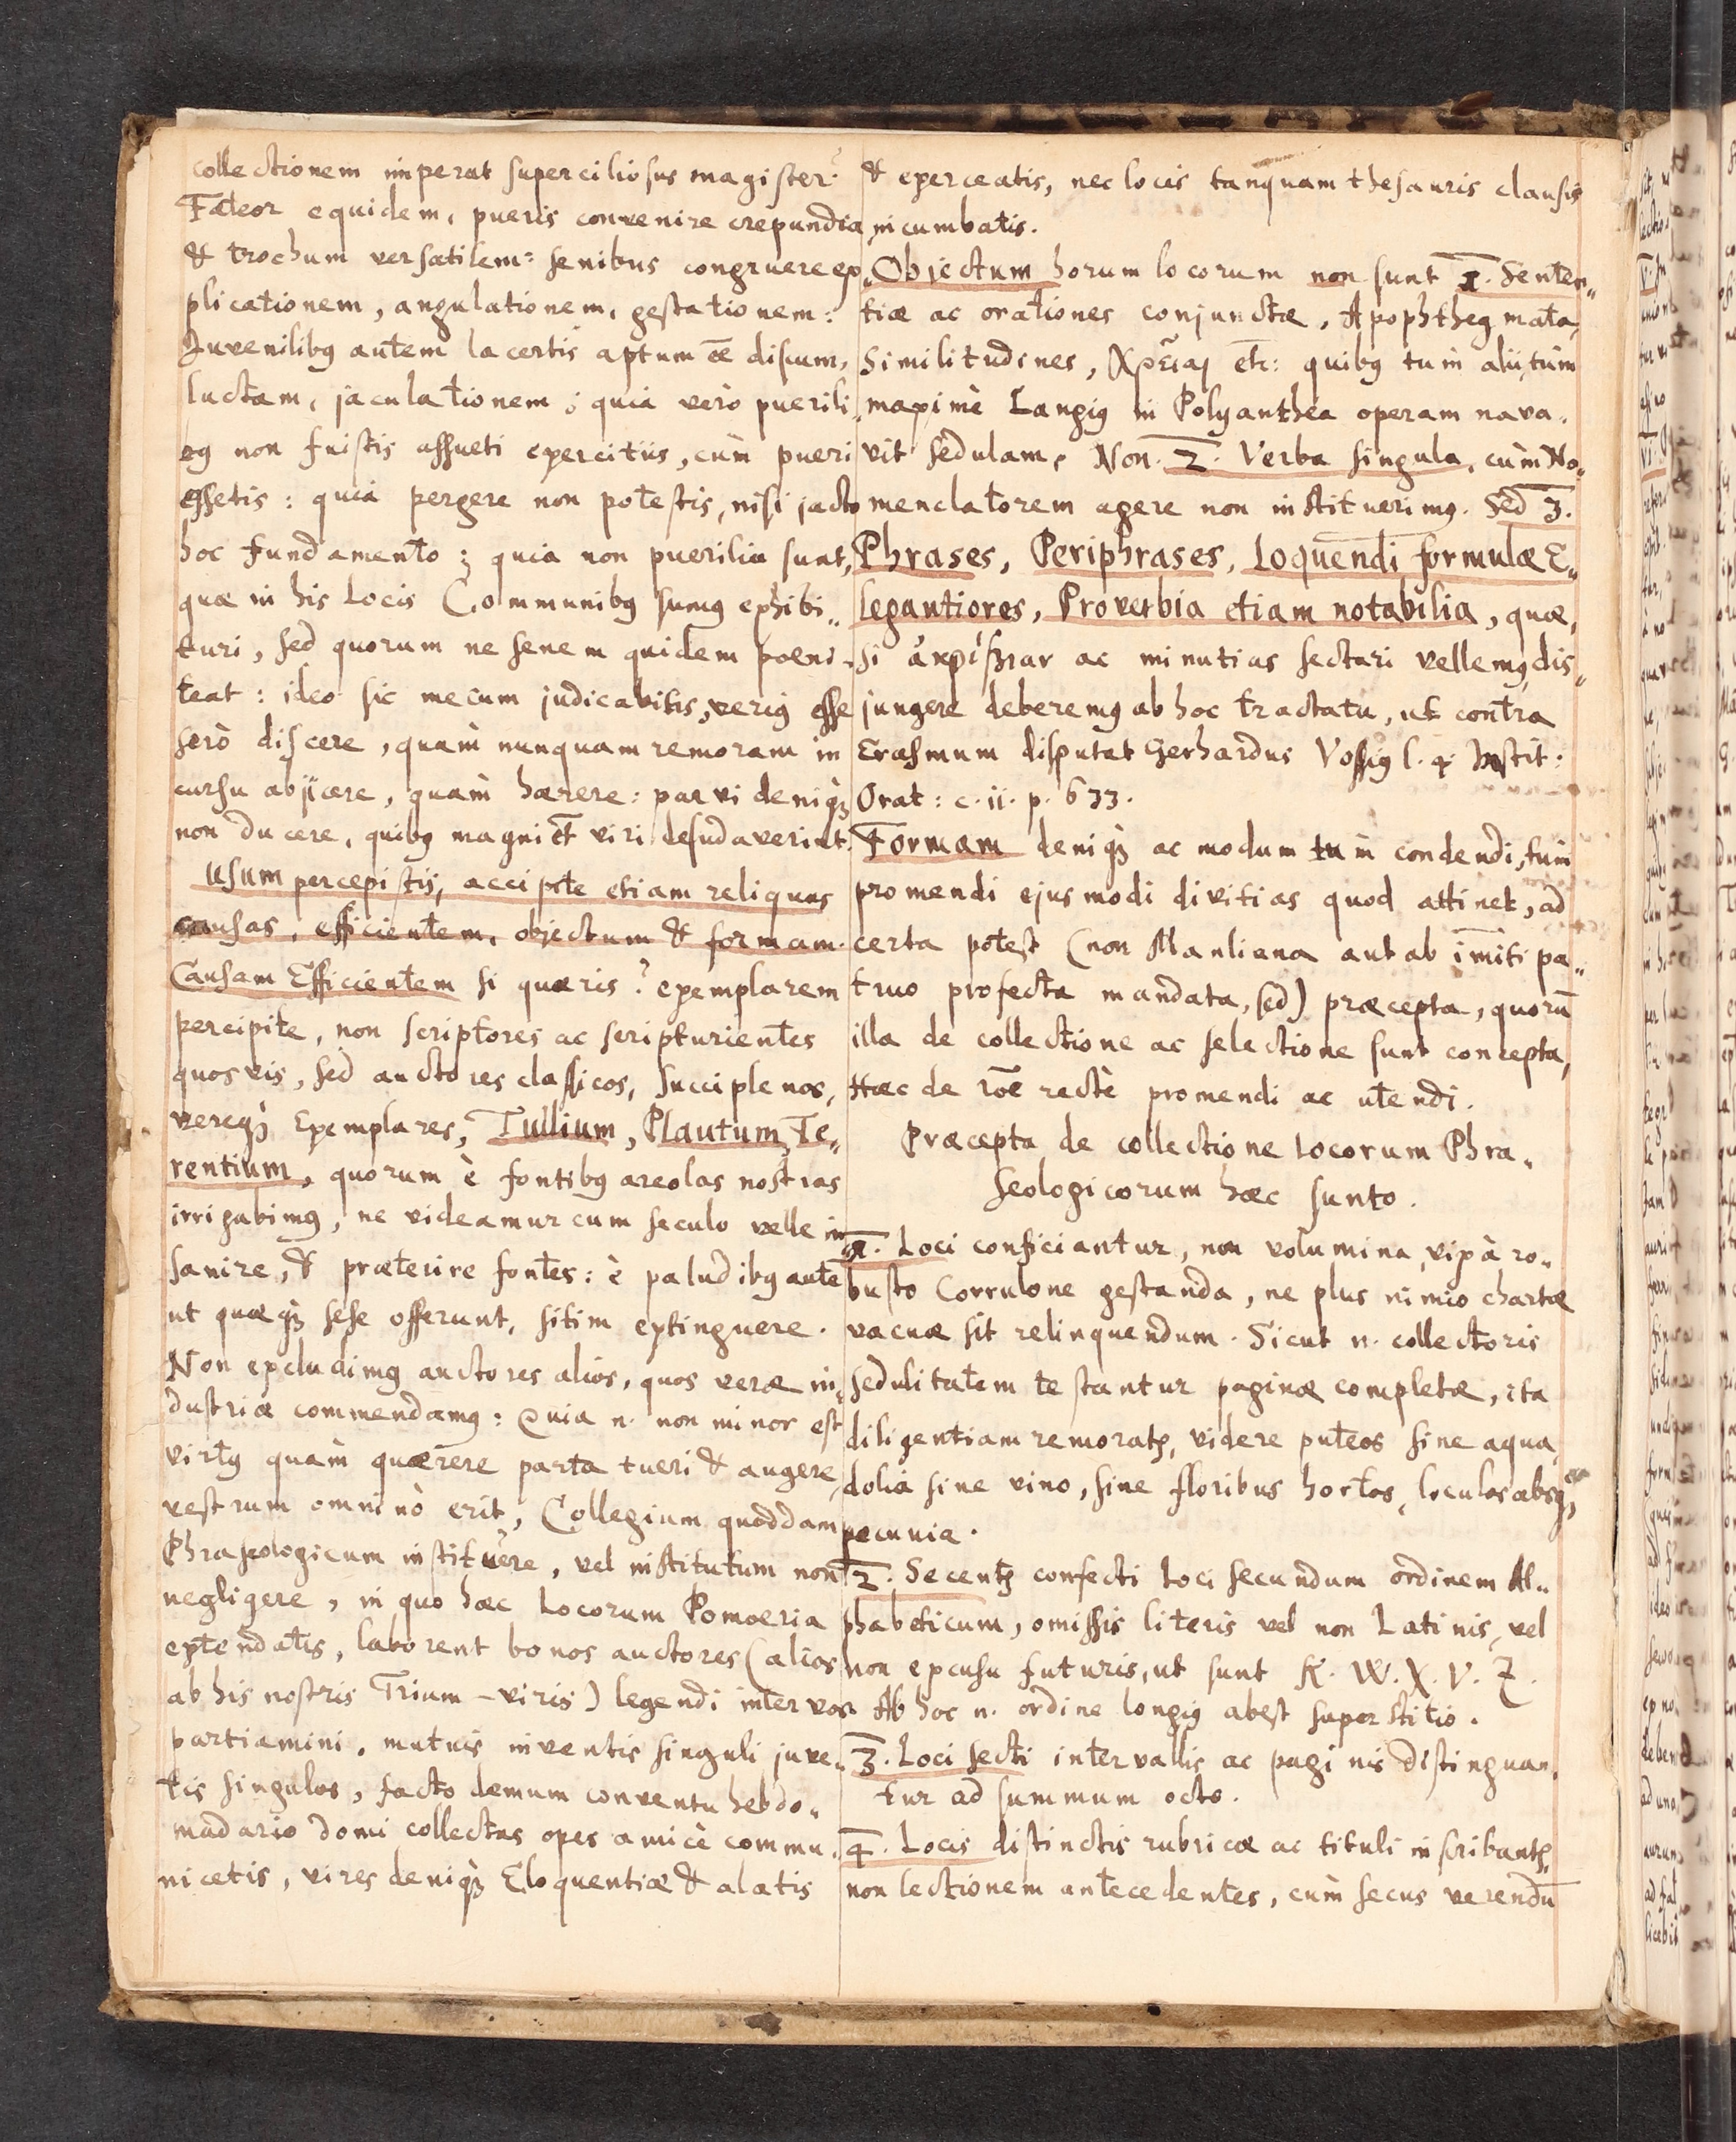 collectionem imperat superciliosus magister?
Fateor equidem, pueris convenire crepundia
& trochum versatilem: senibus congruere ex„
plicationem, angulationem, gestationem:
Juvenilibꝯ autem lacertis aptum ēē discum,
luctam, jaculationem; quia verò puerili„
bꝯ non fuistis assueti exercitiis, cùm pueri
essetis: quia pergere non potestis, nisi jacto
hoc fundamento; quia non puerilia sunt,
quæ in his Locis Communibꝯ sumꝯ exhibi„
turi, sed quorum ne senem quidem poeni„
teat: ideo sic mecum judicabitis, veriꝯ esse
serò discere, quàm nunquam remoram in
cursu abjicere, quàm hærere: parvi deniqꝫ
non ducere, quibꝯ magni et viri desudaverint.
Usum percepistis, accipite etiam reliquas
causas, efficientem, objectum & formam.
Causam Efficientem si quæris? exemplarem
percipite, non scriptores ac scripturientes
quosvis, sed auctores classicos, succiplenos,
vereqꝫ Exemplares, Tullium, Plautum, Te„
rentium, quorum è fontibꝯ areolas nostras
irrigabimꝯ, ne videamur cum seculo velle in
sanire, & præterire fontes: è paludibꝯ autē
ut quæqꝫ sese offerunt, sitim extinguere.
Non excludimꝯ auctores alios, quos veræ in„
dustriæ commendamꝯ: Quia n. non minor est
virtꝯ quàm quærere parta tueri & augere,
vestrum omninò erit, Collegium quoddam
Phraseologicum instituere, vel institutum non
negligere, in quo hæc Locorum Pomoeria
extendatis, laborent bonos auctores (alios
ab his nostris Trium-viris) legendi inter vos
partiamini, mutuis inventis singuli juve„
tis singulos, facto demum conventu hebdo„
madario domi collectas opes amicè commu„
nicetis, vires deniqꝫ Eloquentiæ & alatis
& exerceatis, nec locis tanquam thesauris clausis
incumbatis.
Objectum horum locorum non sunt 1. Senten„
tiæ ac orationes conjunctæ, Apophthegmata,
Similitudines, Χρεῖαι etc: quibꝯ tum alii, tùm
maximè Langiꝯ in Polyanthea operam nava„
vit sedulam. Non 2. Verba singula, cùm No„
menclatorem agere non instituerimꝯ. Sed 3.
Phrases, Periphrases, Loquendi formulæ E„
legantiores, Proverbia etiam notabilia, quæ,
si ἀκρίβειαν ac minutias sectari vellemꝯ, dis„
jungere deberemꝯ ab hoc tractatu, ut contra
Erasmum disputat Gerhardus Vossiꝯ l. 4. Instit:
Orat: c. ii. p. 633.
Formam deniqꝫ ac modum tùm condendi, tùm
promendi ejusmodi divitias quod attinet, ad
certa potest (non Manliana aut ab im̄iti pa„
truo profecta mandata, sed) præcepta, quorū
illa de collectione ac selectione sunt concepta,
Hæc de rōe rectè promendi ac utendi.
Præcepta de collectione Locorum Phra„
seologicorum hæc sunto.
1. Loci conficiantur, non volumina, vix à ro„
busto Corrulone gestanda, ne plus nimio chartæ
vacuæ sit relinquendum. Sicut n. collectoris
sedulitatem testantur paginæ completæ, ita
diligentiam moratꝝ, videre puteos sine aqua,
dolia sine vino, sine floribus hortos, loculos absqꝫ
pecunia.
2. Secentꝝ confecti Loci secundum ordinem Al„
phabeticum, omissis literis vel non Latinis, vel
non ex usu futuris, ut sunt K. W. X. V. Z.
Ab hoc n. ordine longiꝯ abest superstitio.
3. Loci secti intervallis ac paginis distinguan„
tur ad summum octo.
4. Locis distinctis rubricæ ac tituli inscribantꝝ,
non lectionem antecedentes, cùm secus verendū